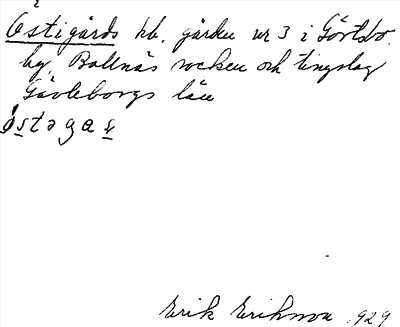 Östigårds hb. gården nr 3 i Görtsbo
by, Bollnäs socken och tingslag
Gävleborgs län
östəgaṣ
Erik Erikson 1929